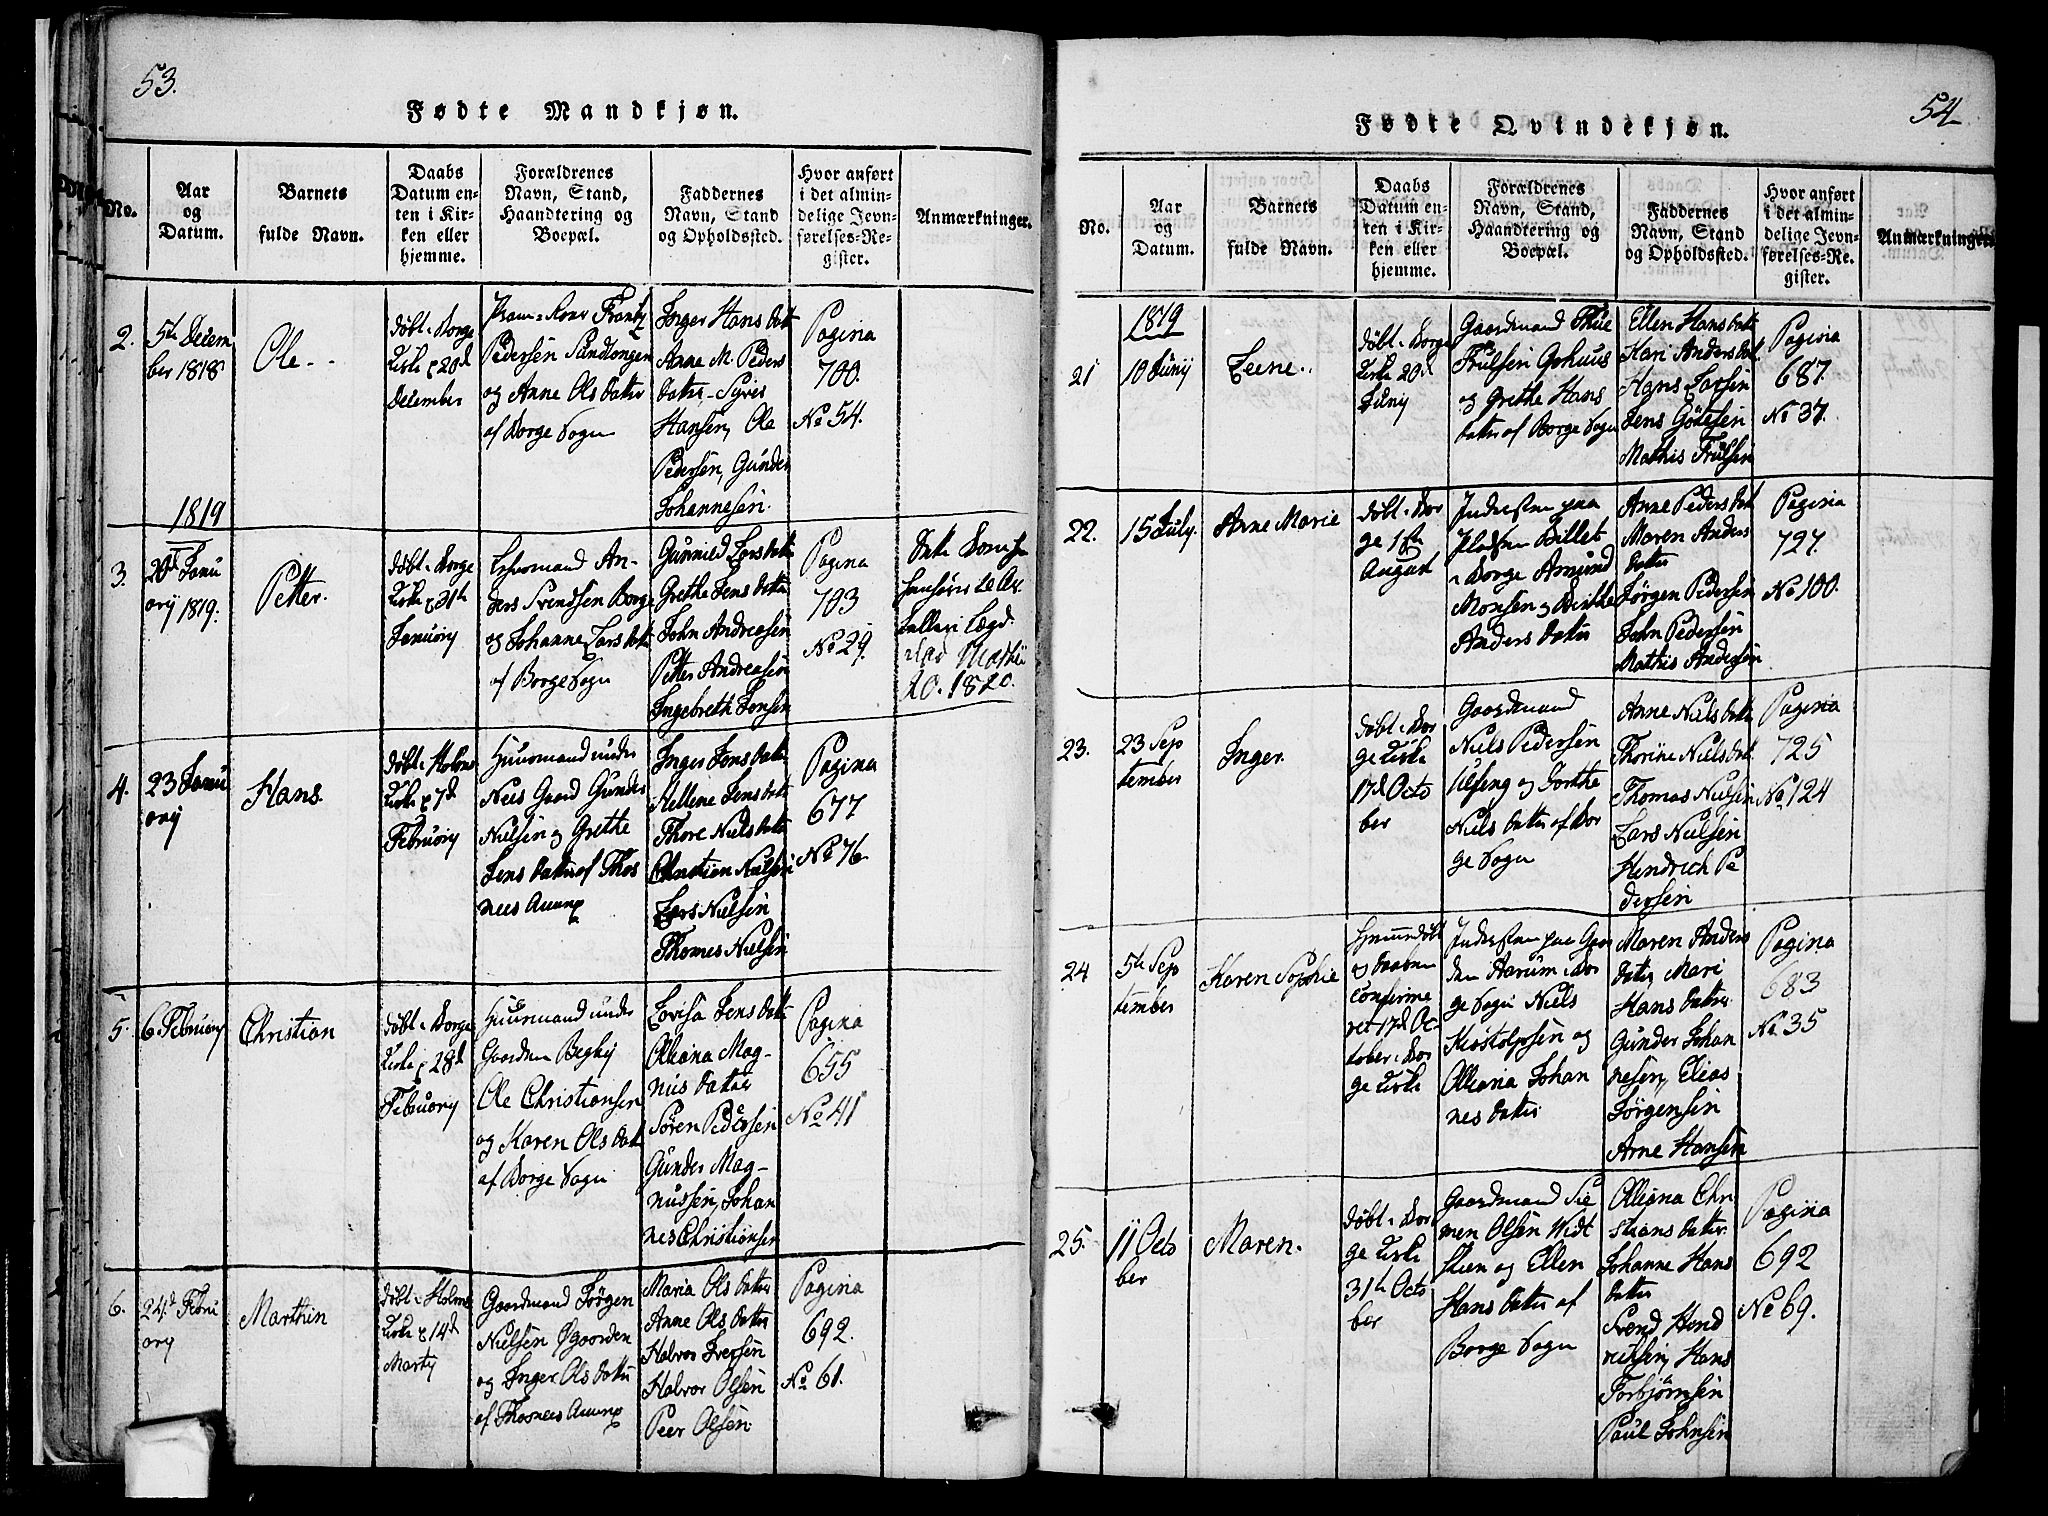 53.
Fødte Mandkjøn.
No.
Aar
og
Datum.
Barnets
fulde Navn.
Daabs
Datum en-
ten i Kir-
ken eller
hjemme.
Forældrenes
Navn, Stand,
Haandtering og
Boepæl.
Faddernes
Navn, Stand
og Opholdssted.
Hvor anført
i det almin-
delige Jevn-
førelses-Re-
gister.
Anmærkninger.
2.
5th Decem
ber 1818
Ole
døbt i Borge
Kirke 20d
December
Pedersen
og Anne Olsdatter
af Borge Sogn
Inger Hansdatt
Anne M. Peders
datter, Syver
Hansen, Ole
Pedersen, Gunder
Johannesen.
Pagina
700.
No 54.
1819
3.
20d Janu
ary 1819.
Petter.
døbt i Borge
Kirke 31th
January
An-
ders Svendsen Borge
og Johanne Larsdatt
af Borge Sogn
Gunnild Larsdatt
Grethe Jensdatter
John Andreasen
Petter Andreasen
Ingebreth Jensen
Pagina
703
No 29.
20. 1820.
4.
23 Janu
ary
Hans.
døbt i Holms
Kirke 7d
February
Huusmand under
Nees Gaard Gunder
Nielsen og Grethe
Jensdatter af Thos
nees Annex
Inger Jensdatter
Hellene Jensdatt
Thore Nielsdatt
Christian Nielsen
Lars Nielsen
Thomes Nielsen
Pagina
677
No 76.
5.
6 February
Christian
døbt i Borge
Kirke 28d
February
Huusmand under
Gaarden Begby
Ole Christiansen
og Karen Olsdatt
af Borge Sogn
Lovisa Jensdatt
Olliana Mag-
nus datter
Søren Pedersen
Gunder Mag-
nussen, Johan
nes Christiansen
Pagina
655
No 41
6.
24d Febru
ary
Marthin
døbt i Holms
Kirke 14d
Marty
Gaardmand Jørgen
Nielsen Øgaarden
og Inger Olsdatter
af Thosnees Annex
Maria Olsdatter
Anne Olsdatter
Halvor Iversen
Halvor Olsen
Peer Olsen
Pagina
692.
No 61.
54
Fødte Qvindekjøn.
No.
Aar
og
Datum.
Barnets
fulde Navn.
Daabs
Datum en-
ten i Kir-
ken eller
hjemme.
Forældrenes
Navn, Stand,
Haandtering og
Boepæl.
Faddernes
Navn, Stand
og Opholdssted.
Hvor anført
i det almin-
delige Jevn-
førelses-Re-
gister.
Anmærkninger.
1819
21
10 Juny
Leene
døbt i Borge
Kirke 20d
Juny
Gaardmand
Trulsen
og Grethe Hans
datter af Borge Sogn
Ellen Hansdatter
Kari Andersdat.
Hans Larsen
Jens Götesen
Mathis Trulsen
Pagina
687.
No 37.
22.
15 July.
Anne Marie
døbt i Bor
ge 1st
August
Inderstem paa
Pladsen Billet
i Borge Amund
Monsen og Birthe
Anders datter
Anne Pedersdat
Maren Anders
datter
Jørgen Pedersen
John Pedersen
Mathis Andersen
Pagina
727.
No 100.
23.
23 Sep
tember
Inger.
døbt i Bor
ge Kirke
17d Octo
ber
Gaardmand
Niels Pedersen
Ulfeng og Dorthe
Niels datter af Bor
ge Sogn
Anne Nielsdatter
Thorine Nielsdat.
Thomas Nielsen
Lars Nielsen
Hendrich Pe
dersen
Pagina
725
No 124
24
5th Sep
tember
Karen Sophie
Hjemmedøbt
og Daaben
confirme
ret 17d Oc
tober i Bor
ge Kirke
Inderstem paa Gaar
den Aarum i Bor
ge Sogn Niels
Kristofersen og
Olliana Johan
nes datter
Maren Anders
datter, Mari
Hans datter
Gunder Johan
nesen, Elias
Jørgensen
Arne Hansen
Pagina
683
No 35
25.
11 Octo
ber
Maren.
døbt i Bor
ge Kirke
31th Octo
ber
Gaardmand Sie
men Olsen Widt
steen og Ellen
Hans datter af
Borge Sogn
Olliana Chri
stians datter
Johanne Hans
datter
Svend Hend
richsen, Hans
Torbjørnsen
Paul Johnsen
Pagina
692
No 69.